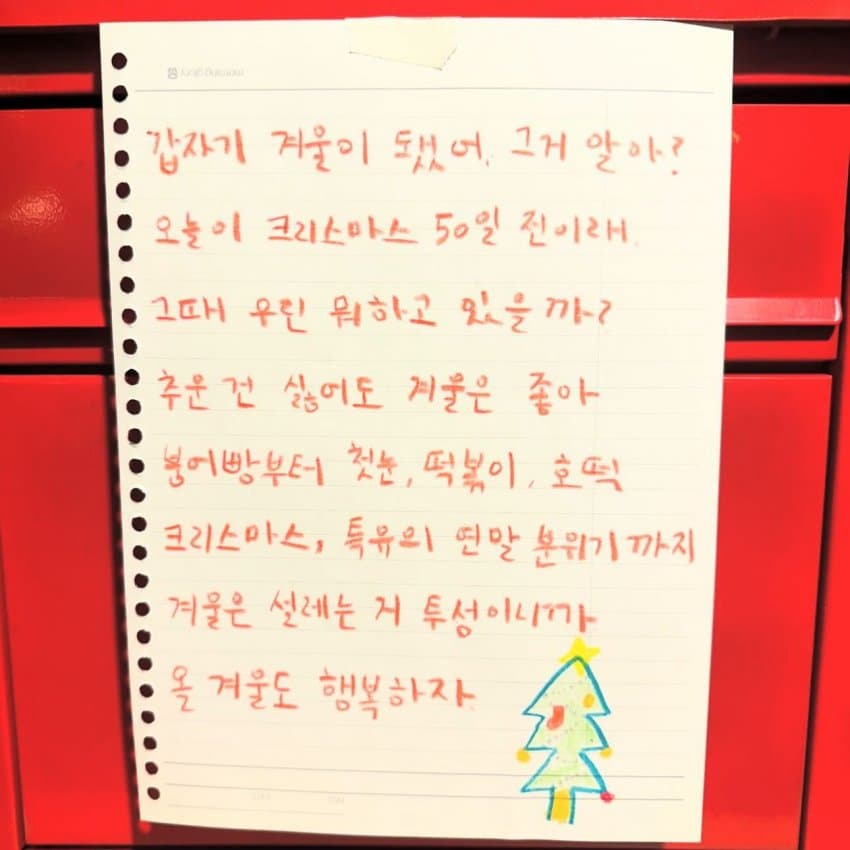 갑자기 겨울이 됐어. 그거 알아?
오늘이 크리스마스 50일 전이래.
그때 우린 뭐하고 있을까?
추운 건 싫어도 겨울은 좋아
붕어빵부터 첫눈, 떡볶이, 호떡
크리스마스, 특유의 연말 분위기까지
겨울은 설레는 거 투성이니까
올 겨울도 행복하자.